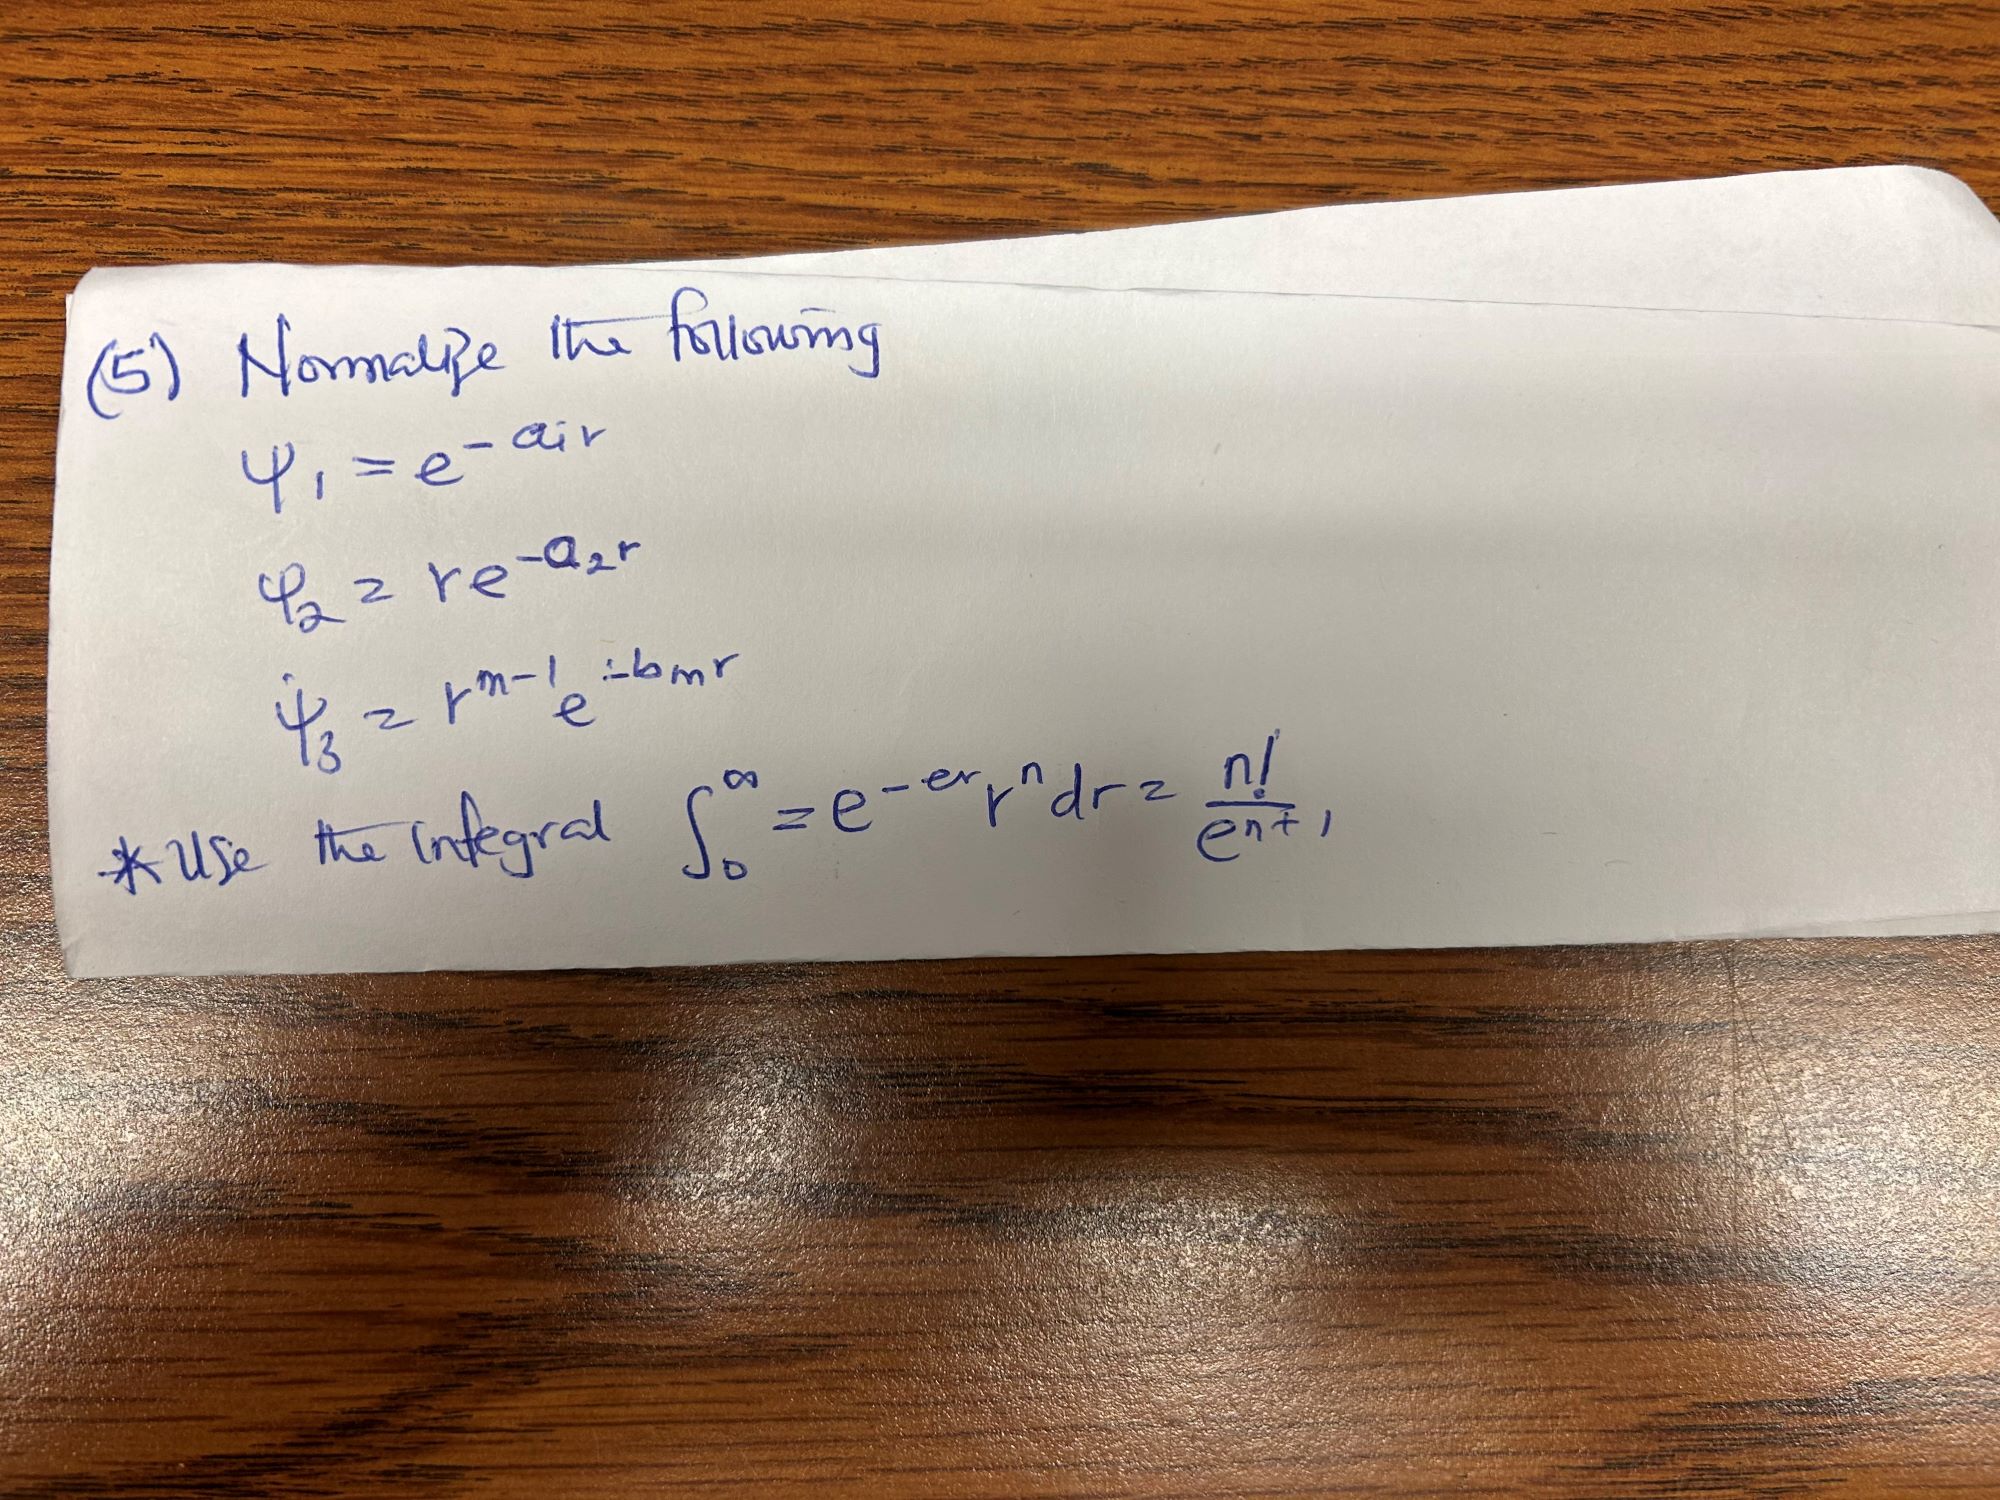 (5) Normalize the following
ψ₁ = e^{-a₁r}
ψ₂ = re^{-a₂r}
ψ₃ = r^{m-1}e^{-bmr}
*Use the integral ∫₀^∞ = e^{-er} rⁿ dr = n!/e^{n+1}